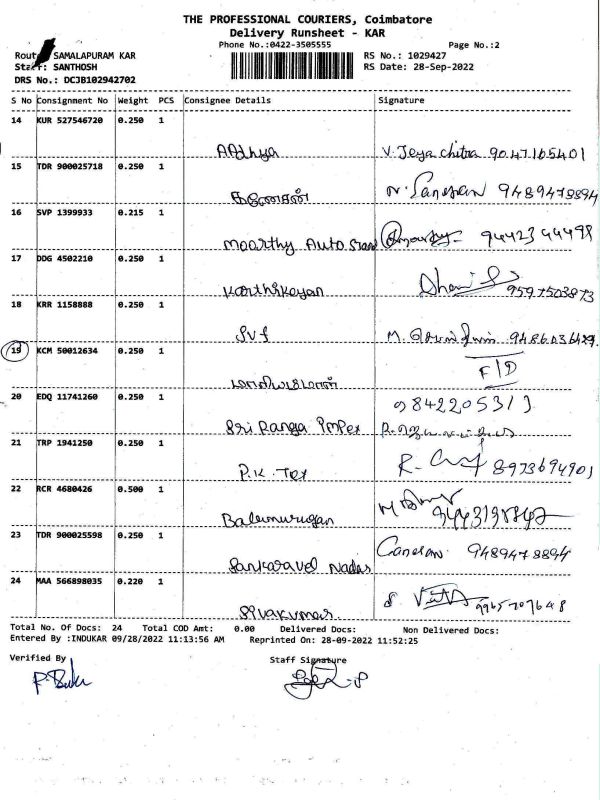 THE PROFESSIONAL COURIERS, Coimbatore
Delivery Runsheet - KAR
Phone No.:0422-3505555
Page No.:2
Route SAMALAPURAM KAR
RS No.: 1029427
Staff: SANTHOSH
RS Date: 28-Sep-2022
DRS No.: DCJB102942702
S No Consignment No Weight PCS Consignee Details Signature
14 KUR 527546720 0.250 1
V. Jeyachitra 9047165401
15 TDR 900025718 0.250 1
கணேசன் 9489478894
16 SVP 1399933 0.215 1
Moorthy Auto Stand 9442344498
17 DDG 4502210 0.250 1
Karthikeyan 9597503873
18 KRR 1158888 0.250 1
SVF M.
19 KCM 50012634 0.250 1
F/D
20 EDQ 11741260 0.250 1
9842205313
Sri Ranga Impex
21 TRP 1941250 0.250 1
P.K. Tex R. 8973694901
22 RCR 4680426 0.500 1
Balamurugan
23 TDR 900025598 0.250 1
Sankaravel Nadar Ganesan 9489478894
24 MAA 566898035 0.220 1
Sivakumar S
Total No. Of Docs: 24 Total COD Amt: 0.00 Delivered Docs: Non Delivered Docs:
Entered By :INDUKAR 09/28/2022 11:13:56 AM Reprinted On: 28-09-2022 11:52:25
Verified By Staff Signature